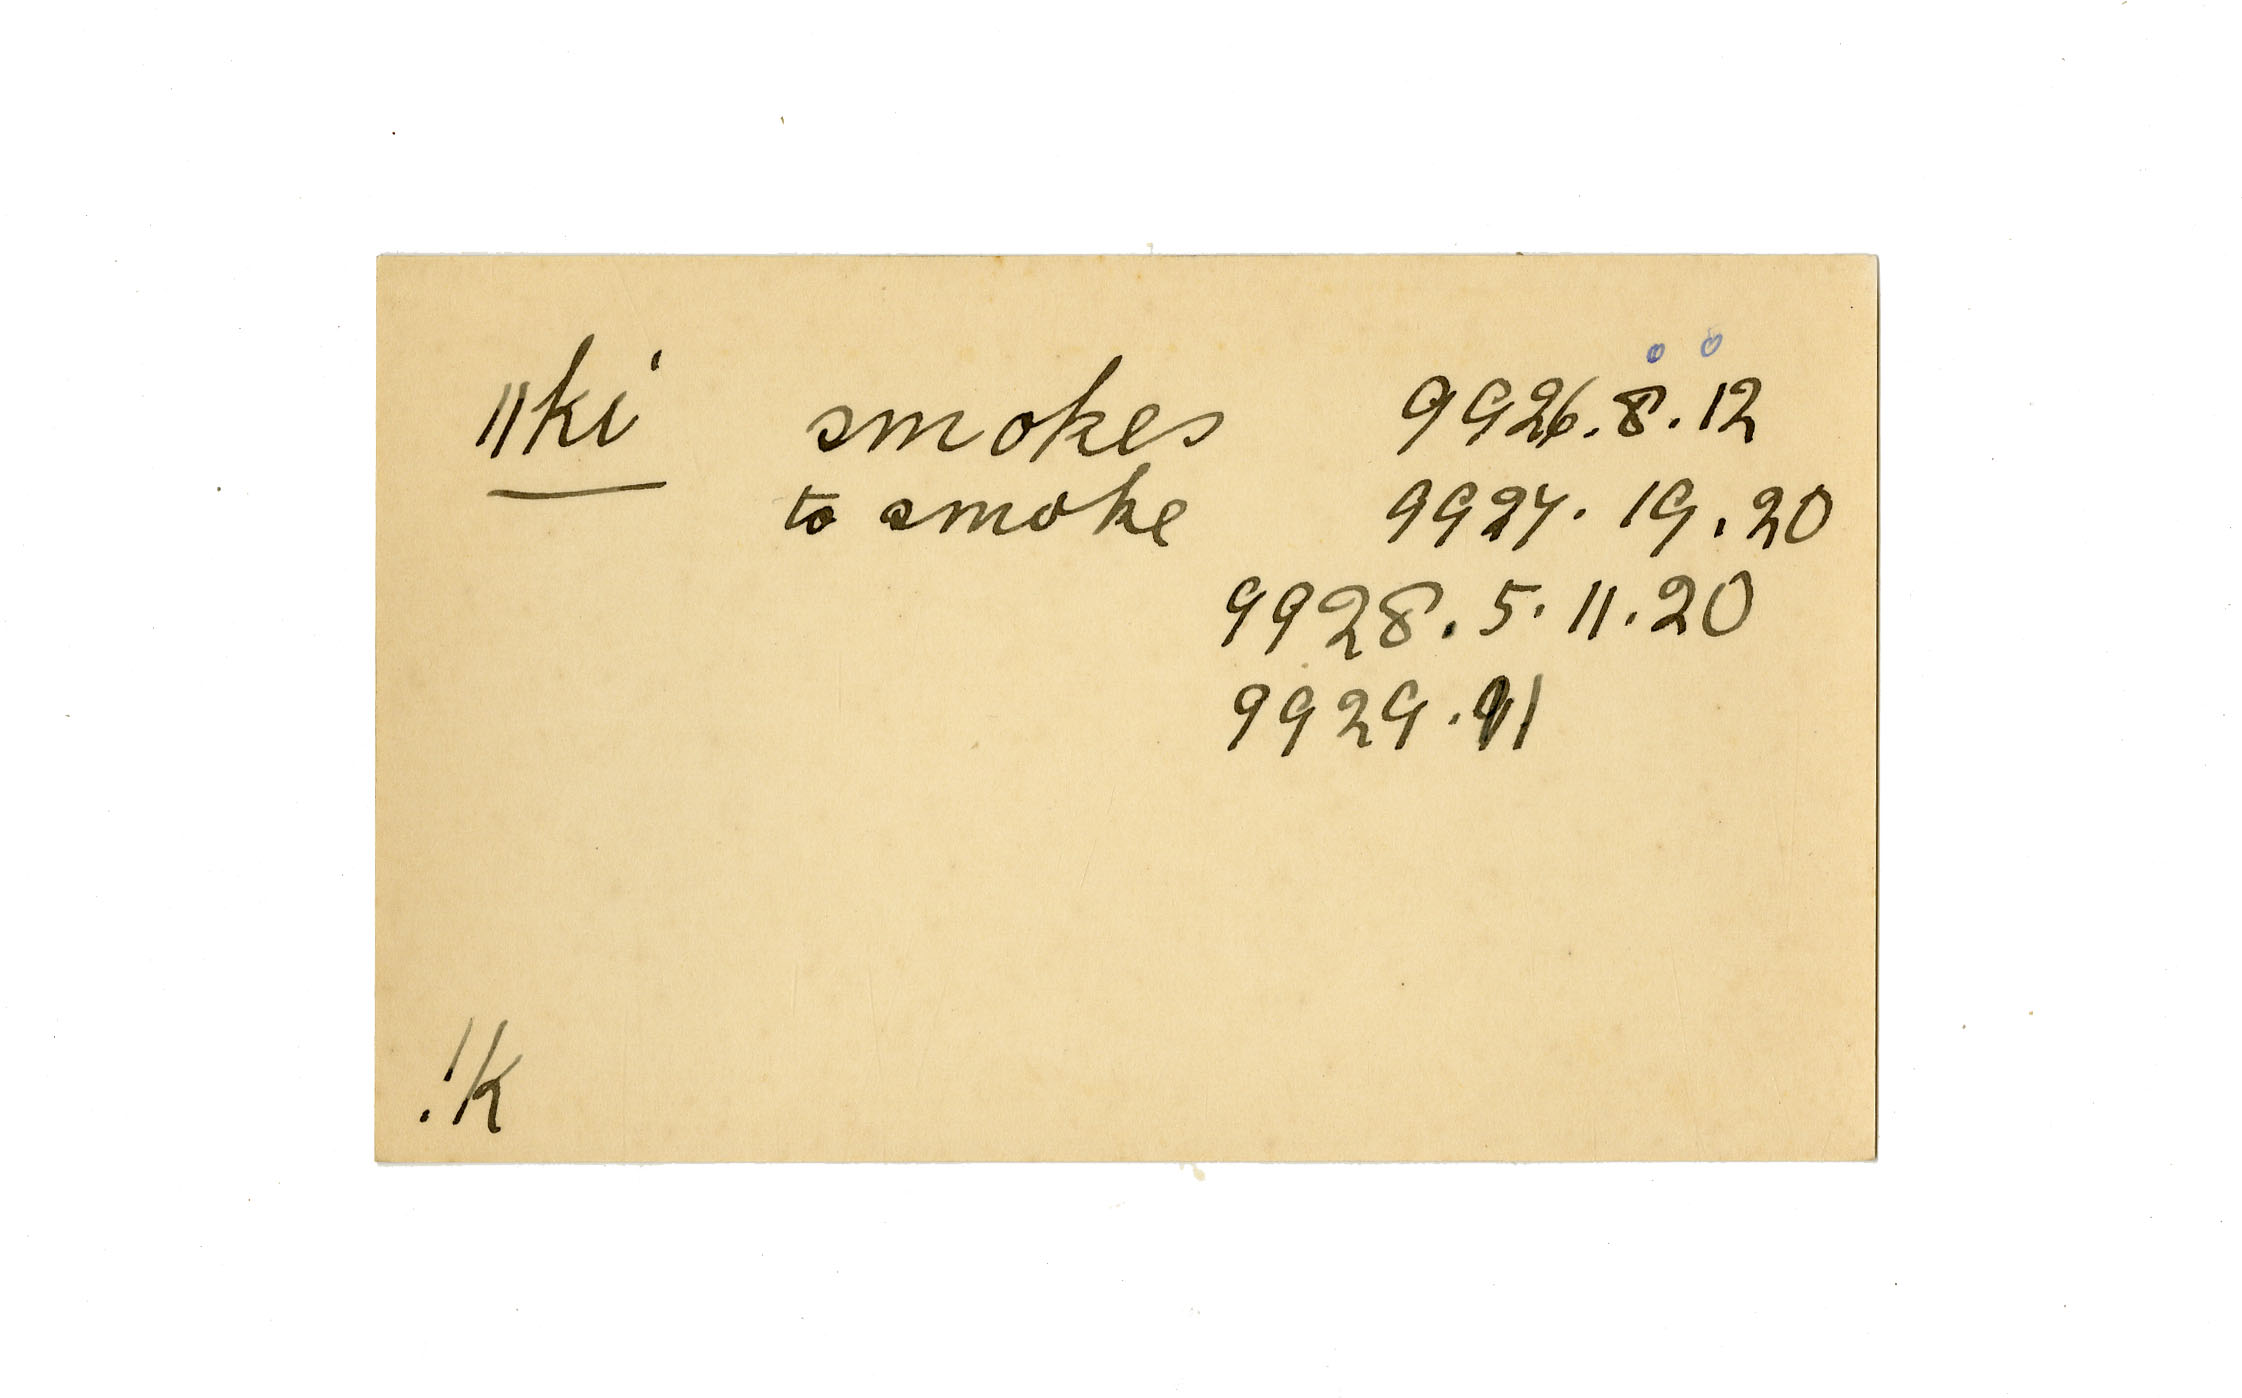 ǁki smokes 9926.8.12
to smoke 9927.19.20
9928.5.11.20
9929.11
!k